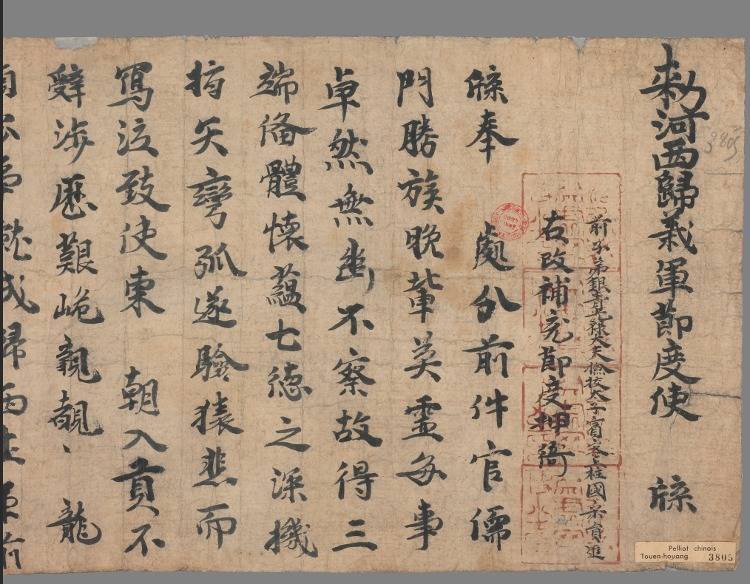 敕河西歸義軍節度使 牒
前子弟銀青光祿大夫檢校太子賓客上柱國宋員進
右改補充節度押衙
牒奉 處分前件官儒
門勝族晚輩英靈每事
卓然無幽不察故得三
端俻體懷蘊七德之深機
指矢彎弧遂驗猿悲而
寫泣致使東 朝入貢不
辭涉歷艱峗親覩、龍
就成歸西
3805
Pelliot chinois
Touen-houang 3805